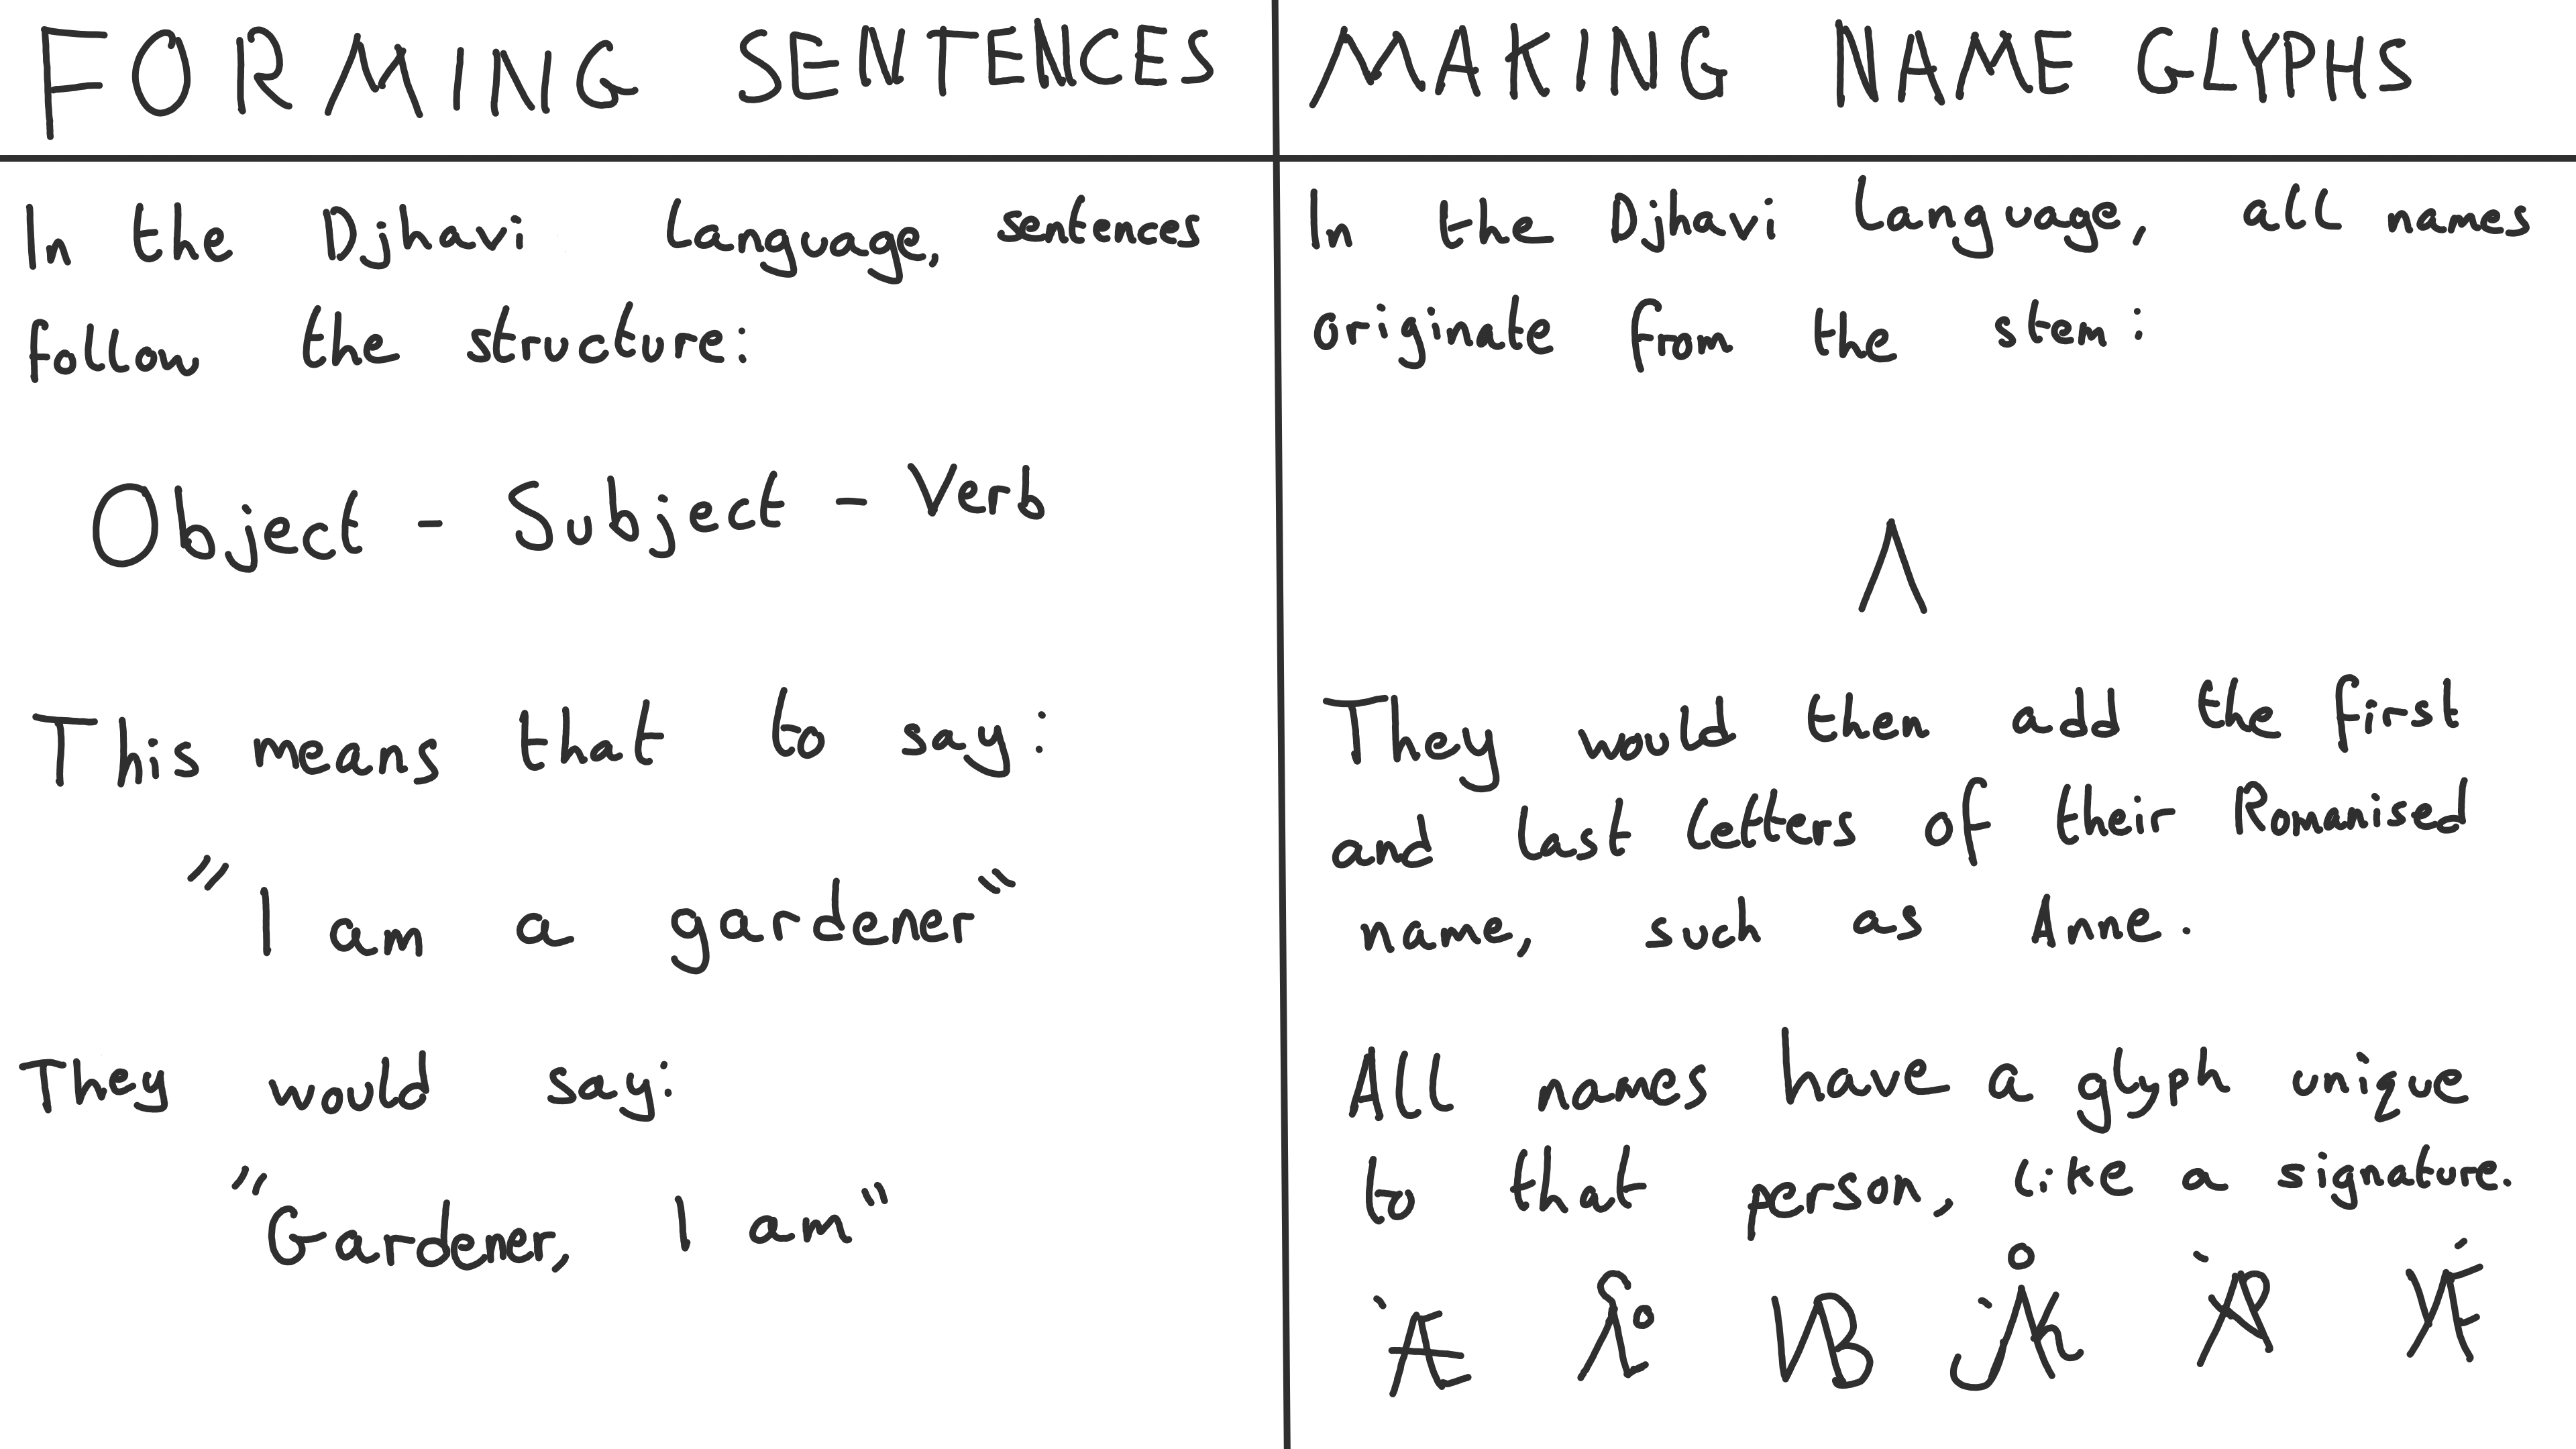 FORMING SENTENCES
In the Djhavi language, sentences
follow the structure:
Object - Subject - Verb
This means that to say:
"I am a gardener"
They would say:
"Gardener, I am"
MAKING NAME GLYPHS
In the Djhavi language, all names
originate from the stem:
Λ
They would then add the first
and last letters of their Romanised
name, such as Anne.
All names have a glyph unique
to that person, like a signature.